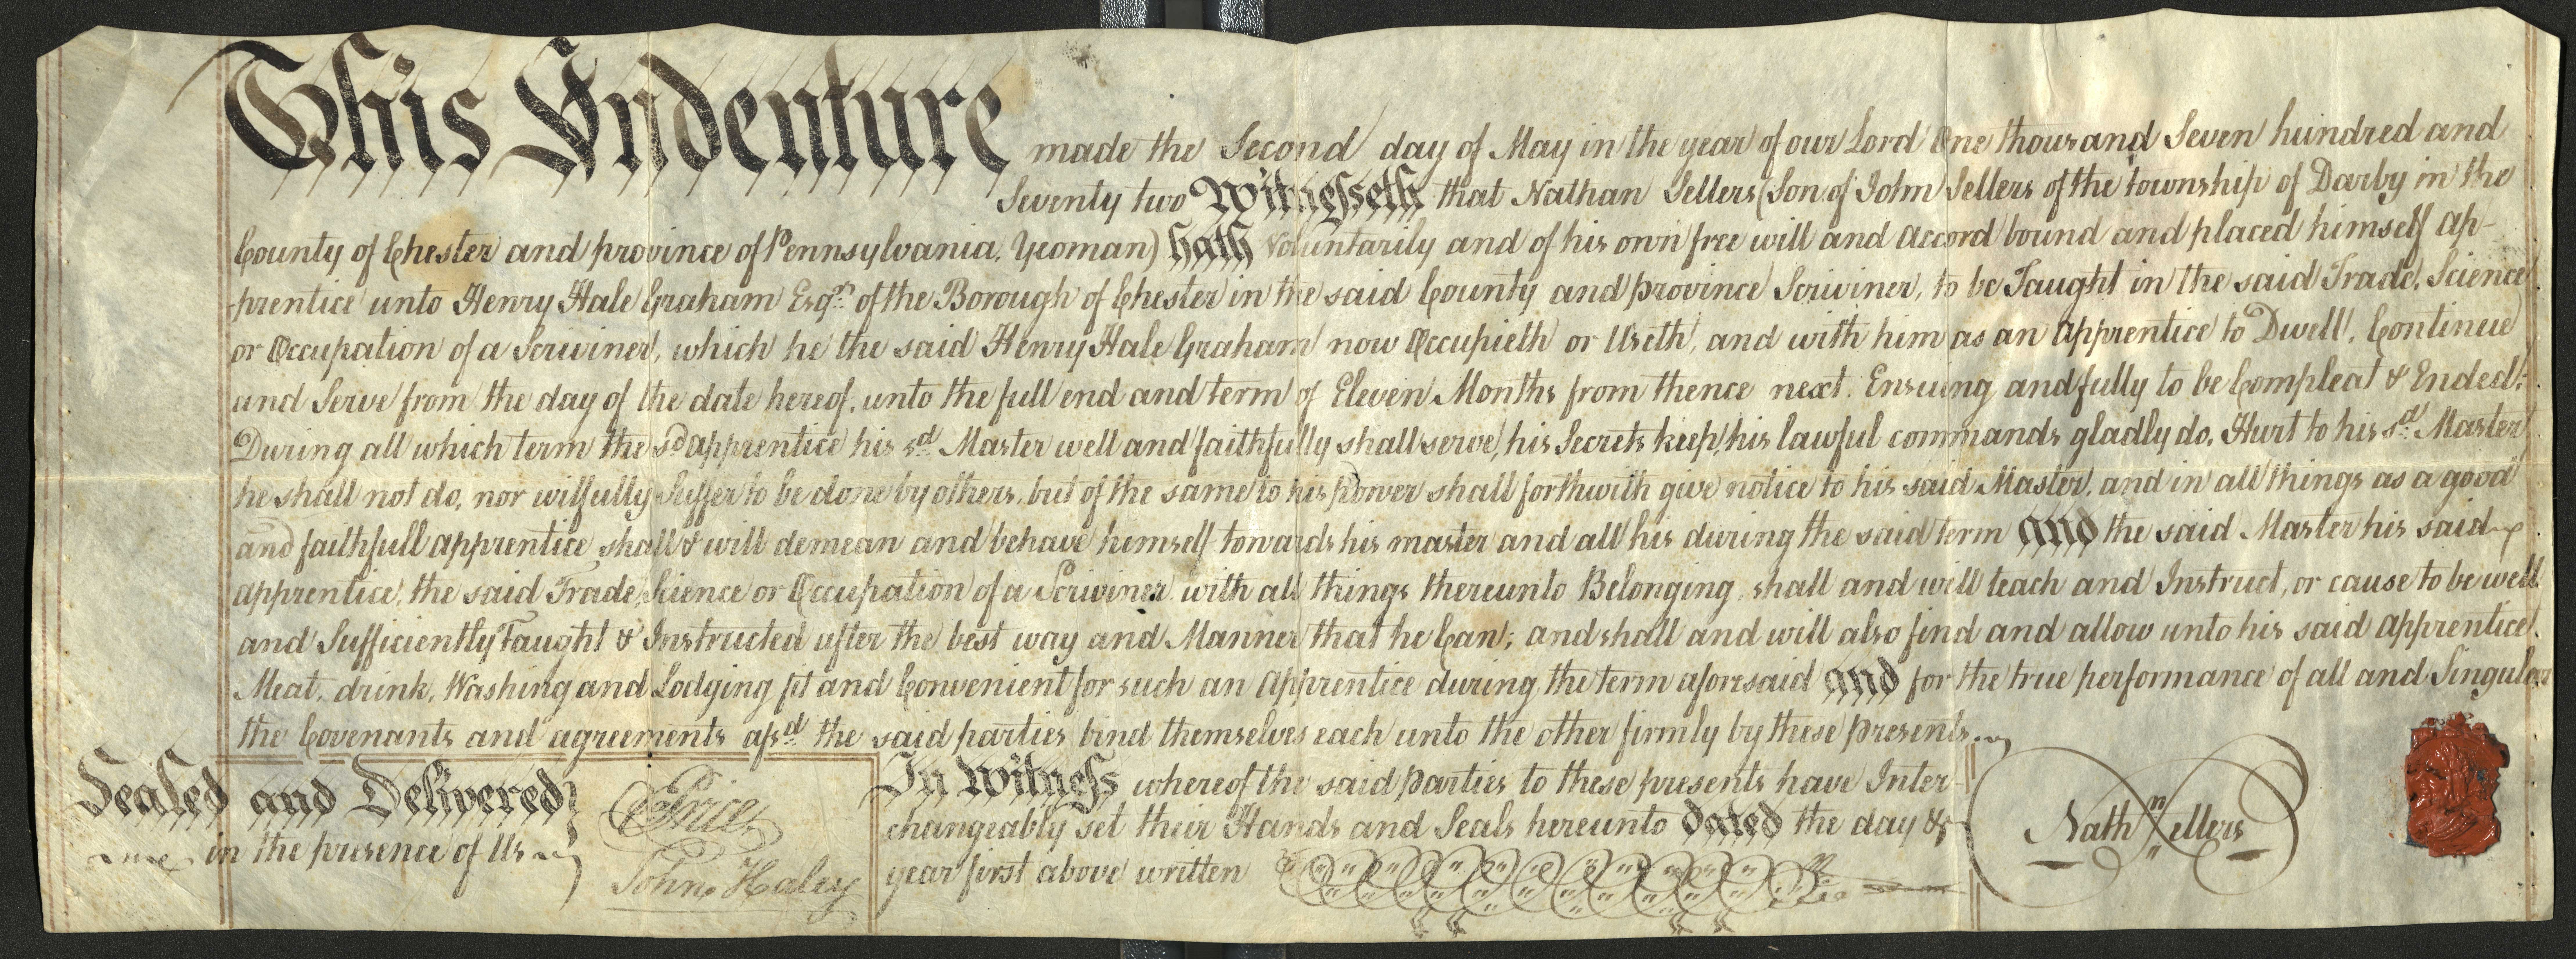 This Indenture made the Second day of May in the year of our Lord One thousand Seven hundred and
Seventy two Witnesseth that Nathan Sellers (Son of John Sellers of the township of Darby in the
County of Chester and province of Pennsylvania, Yeoman) hath Voluntarily and of his own free will and Accord bound and placed himself ap-
-prentice unto Henry Hale Graham Esqr. of the Borough of Chester in the said County and province Scriviner, to be Taught in the said Trade, Science
or Occupation of a Scriviner, which he the said Henry Hale Graham now Occupieth or Useth, and with him as an Apprentice to Dwell, Continue
and Serve from the day of the date hereof, unto the full end and term of Eleven Months from thence next Ensuing and fully to be Compleat & Ended;
During all which term the sd. apprentice his sd. Master well and faithfully shall serve, his Secrets keep, his lawful commands gladly do, Hurt to his sd. Master
he shall not do, nor wilfully Suffer to be done by others, but of the same to his power shall forthwith give notice to his said Master, and in all things as a good
and faithfull apprentice shall & will demean and behave himself towards his master and all his during the said term and the said Master his said
apprentice, the said Trade, Science or Occupation of a Scriviner with all things thereunto Belonging, shall and will teach and Instruct, or cause to be well
and Sufficiently Taught & Instructed after the best way and Manner that he Can; and shall and will also find and allow unto his said apprentice,
Meat, drink, Washing and Lodging fit and Convenient for such an Apprentice during the term aforesaid and for the true performance of all and Singular
the Covenants and agreements afsd. the said parties bind themselves each unto the other firmly by these presents.
Sealed and Delivered
in the presence of Us
Price
John Haley
In Witness whereof the said parties to these presents have Inter-
changeably set their Hands and Seals hereunto dated the day &
year first above written
Nathn Sellers